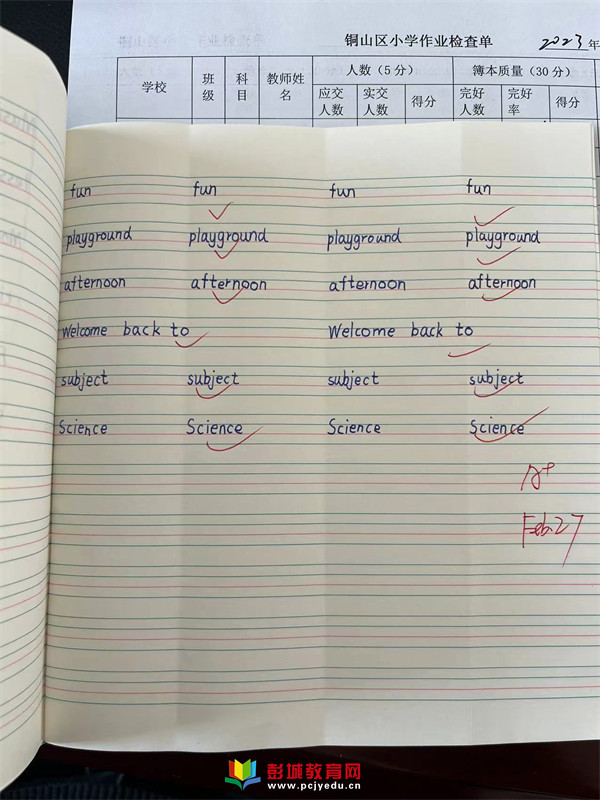 铜山区小学作业检查单 2023年
学校 班级 科目 教师姓名 人数（5分） 簿本质量（30分）
应交人数 实交人数 得分 完好人数 完好率 得分
fun fun fun fun
playground playground playground playground
afternoon afternoon afternoon afternoon
Welcome back to Welcome back to
subject subject subject subject
Science Science Science Science
A+
Feb.27
彭城教育网
www.pcjyedu.cn